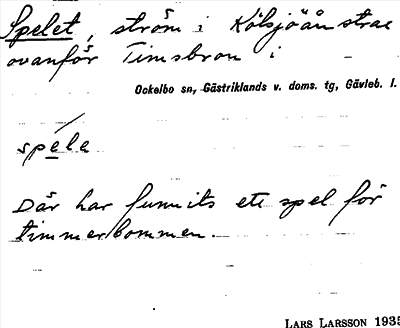 Spelet, ström i Kölsjöån strax
ovanför Timsbron i
Ockelbo sn, Gästriklands v. doms. tg, Gävleb. l.
spéla
Där har funnits ett spel för
timmerbommen.
LARS LARSSON 1935